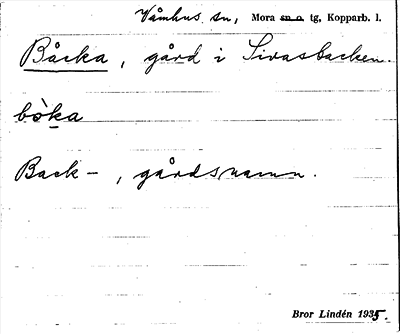 Våmhus sn, Mora sn o. tg, Kopparb. l.
Båcka, gård i Sivasbacken.
bòka
Back-, gårdsnamn.
Bror Lindén 1935.